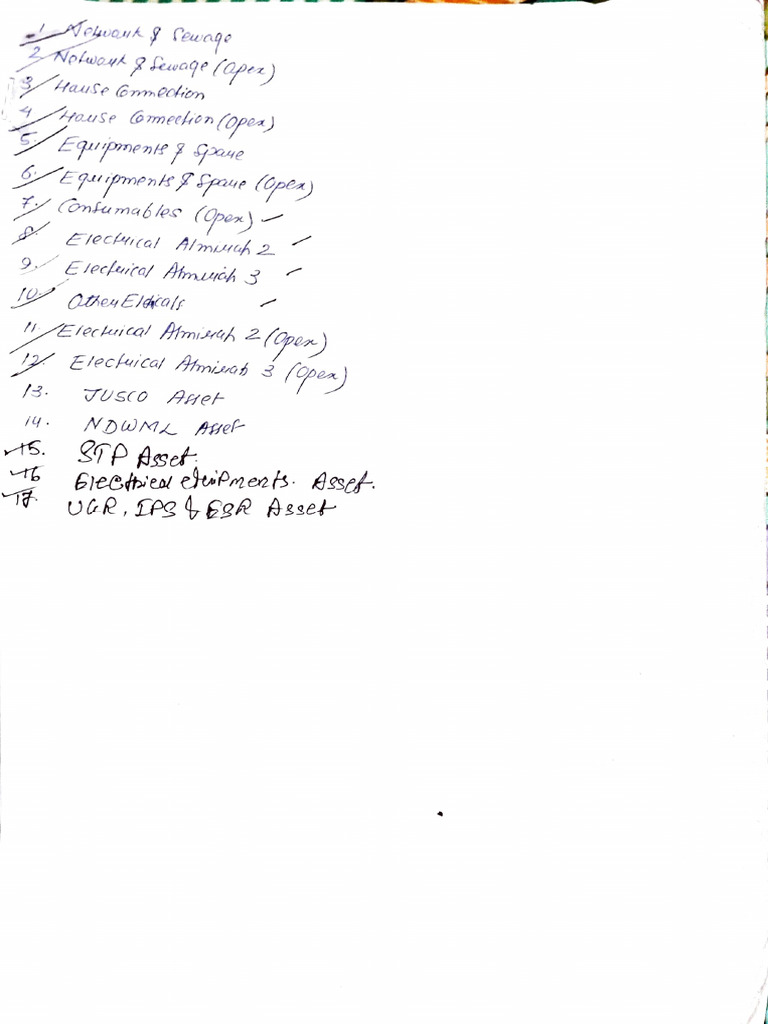 1 Network & Sewage
2 Network & Sewage (Opex)
3 House Connection
4 House Connection (Opex)
5. Equipments & Spare
6. Equipments & Spare (Opex)
7. Consumables (Opex)
8 Electrical Almirah 2
9. Electrical Almirah 3
10. Other Eldicals
11. Electrical Almirah 2 (Opex)
12. Electrical Almirah 3 (Opex)
13. JUSCO Asset
14. NDWML Asset
15. STP Asset.
16 Electrical equipments. Asset.
17. UGR, IPS & ESR Asset